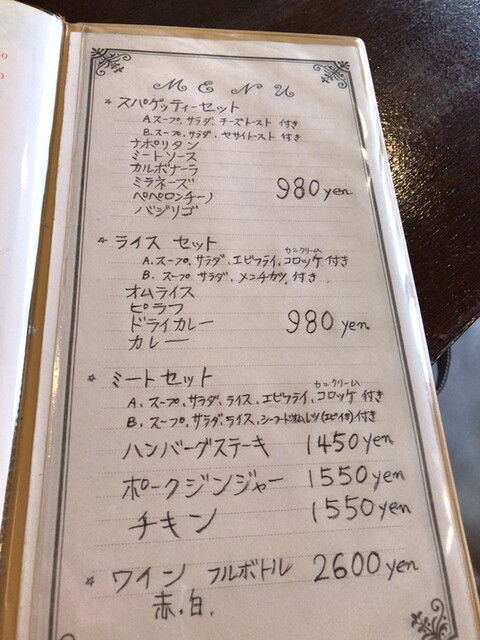 MENU
* スパゲッティーセット
A.スープ、サラダ、チーズトースト 付き
B.スープ、サラダ、セサイトースト 付き
ナポリタン
ミートソース
カルボナーラ
ミラネーズ
ペペロンチーノ 980 yen
バジリコ
* ライス セット
A.スープ、サラダ、エビフライ、カニクリームコロッケ 付き
B. スープ、サラダ、メンチカツ、付き
オムライス
ピラフ
ドライカレー 980 yen
カレー
* ミートセット
A.スープ、サラダ、ライス、エビフライ、カニクリームコロッケ 付き
B.スープ、サラダ、ライス、シーフードオムレツ(エビ、イカ)付き
ハンバーグステーキ 1450yen
ポークジンジャー 1550yen
チキン 1550yen
* ワイン フルボトル 2600yen
赤.白.